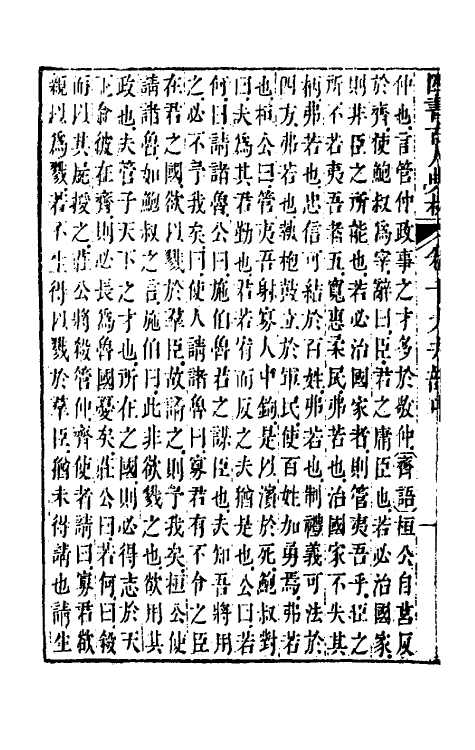 四書古人典林 卷十 大夫部中 十
仲也言管仲政事之才多於敬仲齊語桓公自莒反
於齊使鮑叔爲宰辭曰臣君之庸臣也若必治國家
則非臣之所能也若必治國家者則管夷吾乎臣之
所不若夷吾者五寬惠柔民弗若也治國家不失其
柄弗若也忠信可結於百姓弗若也制禮義可法於
四方弗若也執枹鼓立於軍民使百姓加勇焉弗若
也桓公曰管夷吾射寡人中鉤是以濱於死鮑叔對
曰夫爲其君勤也君若宥而反之夫猶是也公曰若
何曰請諸魯公曰施伯魯君之謀臣也夫知吾將用
之必不予我矣曰使人請諸魯曰寡君有不令之臣
在君之國欲以戮於羣臣故請之則予我矣桓公使
請諸魯如鮑叔之言施伯曰此非欲戮之也欲用其
政也夫管子天下之才也所在之國則必得志於天
下令彼在齊則必長爲魯國憂矣莊公曰若何曰殺
而以其屍授之莊公將殺管仲齊使者請曰寡君欲
親以爲戮若不生得以戮於羣臣猶未得請也請生